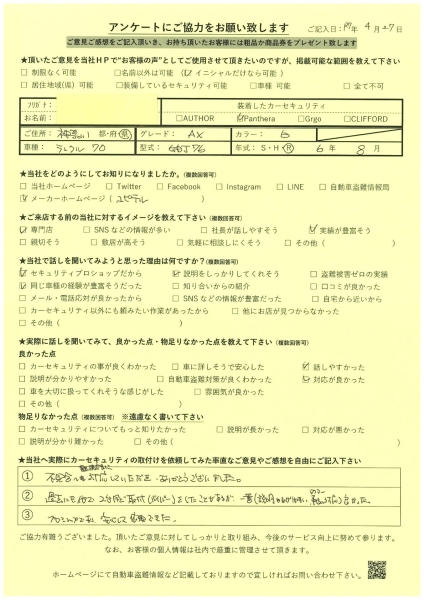 アンケートにご協力をお願い致します
ご記入日: 年 4 月 27 日
ご意見ご感想をご記入頂いき、お持ち頂いたお客様には粗品か商品券をプレゼント致します
★頂いたご意見を当社HPで“お客様の声”としてご使用させて頂きたいのですが、掲載可能な範囲を教えて下さい
□ 制限なく可能 □名前以外は可能 ☑ イニシャルだけなら可能
□ 居住地域(県) 可能 □装備しているセキュリティ可能 □車種 可能 □ 全て不可
フリガナ: 装着したカーセキュリティ
お名前: □AUTHOR ☑Panthera □Grgo □CLIFFORD
ご住所: 神奈川 都・府・県 グレード: AX カラー:
車種: ランクル 70 型式: GDJ76 年式: S・H・R 6 年 8 月
★当社をどのようにしてお知りになりましたか。(複数回答可)
□ 当社ホームページ □ Twitter □ Facebook □ Instagram □ LINE □ 自動車盗難情報局
☑ メーカーホームページ ( ユピテル )
★ご来店する前の当社に対するイメージを教えて下さい(複数回答可)
☑ 専門店 □ SNSなどの情報が多い □ 社長が話しやすそう ☑ 実績が豊富そう
□ 親切そう □ 敷居が高そう □ 気軽に相談しにくそう □ その他( )
★当社で話しを聞いてみようと思った理由は何ですか?(複数回答可)
☑ セキュリティプロショップだから ☑ 説明をしっかりしてくれそう □ 盗難被害ゼロの実績
☑ 同じ車種の経験が豊富そうだった □ 知り合いからの紹介 □ 口コミが良かった
□ メール・電話応対が良かったから □ SNSなどの情報が豊富だった □ 自宅から近いから
□ カーセキュリティ以外にも頼みたい作業があったから □ 他にお店が見つからなかった
□ その他 ( )
★実際に話しを聞いてみて、良かった点・物足りなかった点を教えて下さい(複数回答可)
良かった点
□ カーセキュリティの事が良くわかった □ 車に詳しそうで安心した ☑ 話しやすかった
□ 説明が分かりやすかった □ 自動車盗難対策が良くわかった ☑ 対応が良かった
□ 車を大切に扱ってくれそうな感じがした □ 雰囲気が良かった
□ その他( )
物足りなかった点(複数回答可) ※遠慮なく書いて下さい
□ カーセキュリティについてもっと知りたかった □ 説明が長かった □ 対応が悪かった
□ 説明が分り難かった □ その他( )
★当社へ実際にカーセキュリティの取付けを依頼してみた率直なご意見やご感想を自由にご記入下さい
① 対応していただき ありがとうございました。
②
③
ご協力有難うございました。頂いたご意見に対してしっかりと取り組み、今後のサービス向上に努めて参ります。
なお、お客様の個人情報は社内で厳重に管理させて頂きます。
ホームページにて自動車盗難情報など記載しておりますので宜しければお問い合わせ下さい。